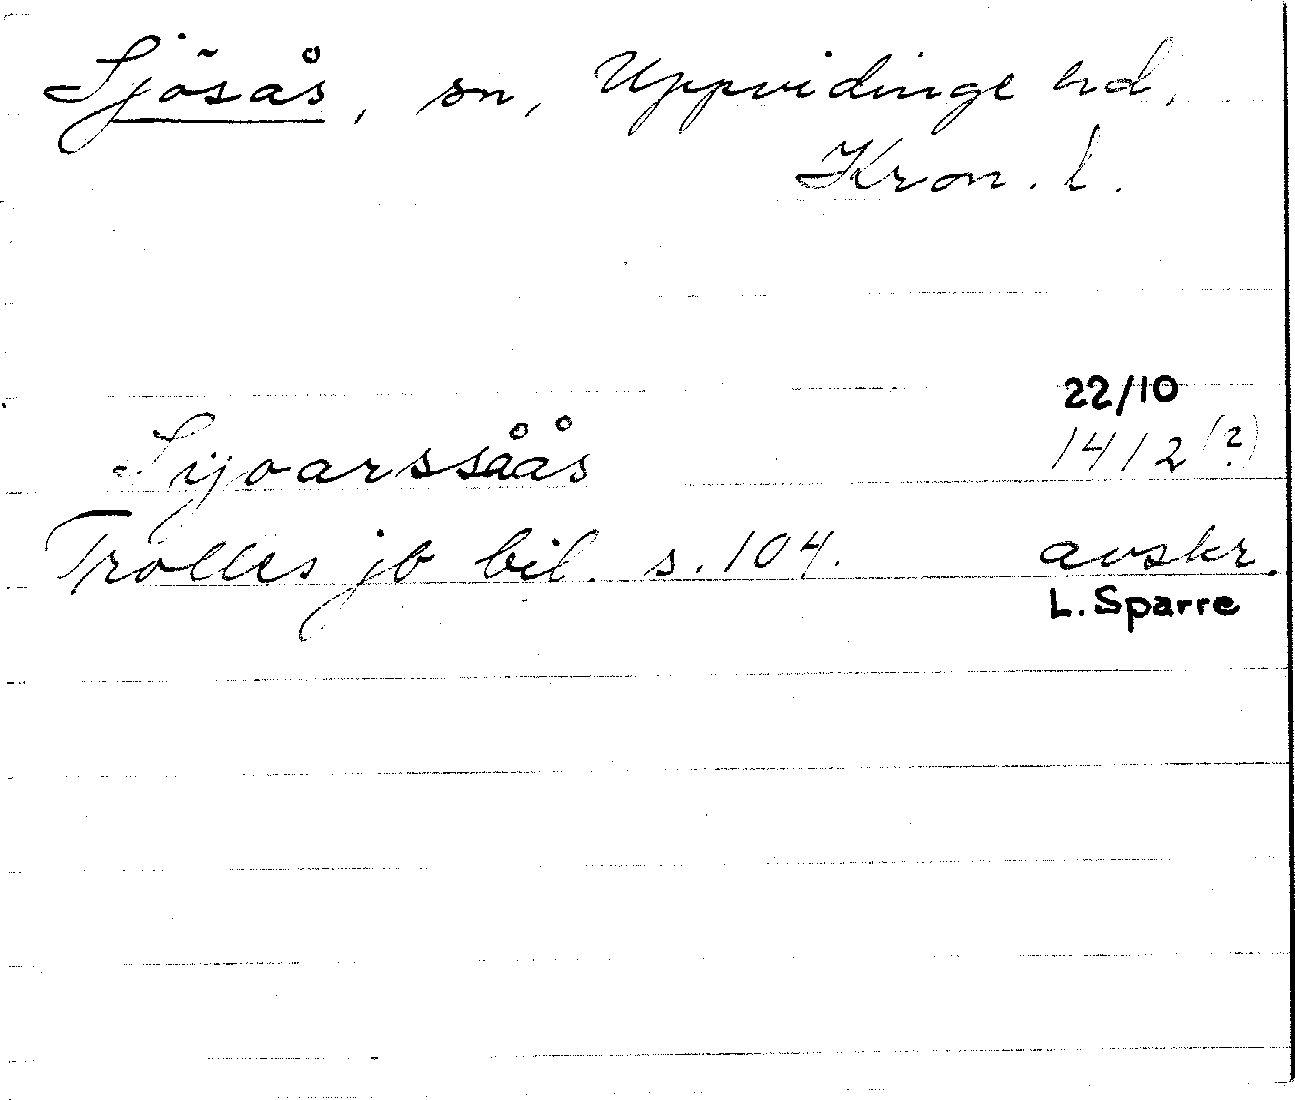 Sjösås, sn, Uppvidinge hd,
Kron. l.
22/10
Syoarssåås 1412(?)
Trolles jb bil. s. 104. avskr.
L. Sparre